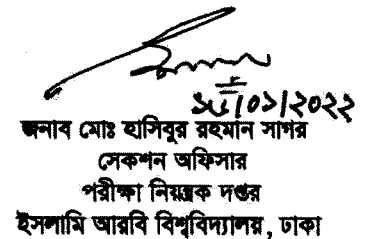 /০১/২০২২
জনাব মোঃ হাসিবুর রহমান সাগর
সেকশন অফিসার
পরীক্ষা নিয়ন্ত্রক দপ্তর
ইসলামি আরবি বিশ্ববিদ্যালয়, ঢাকা